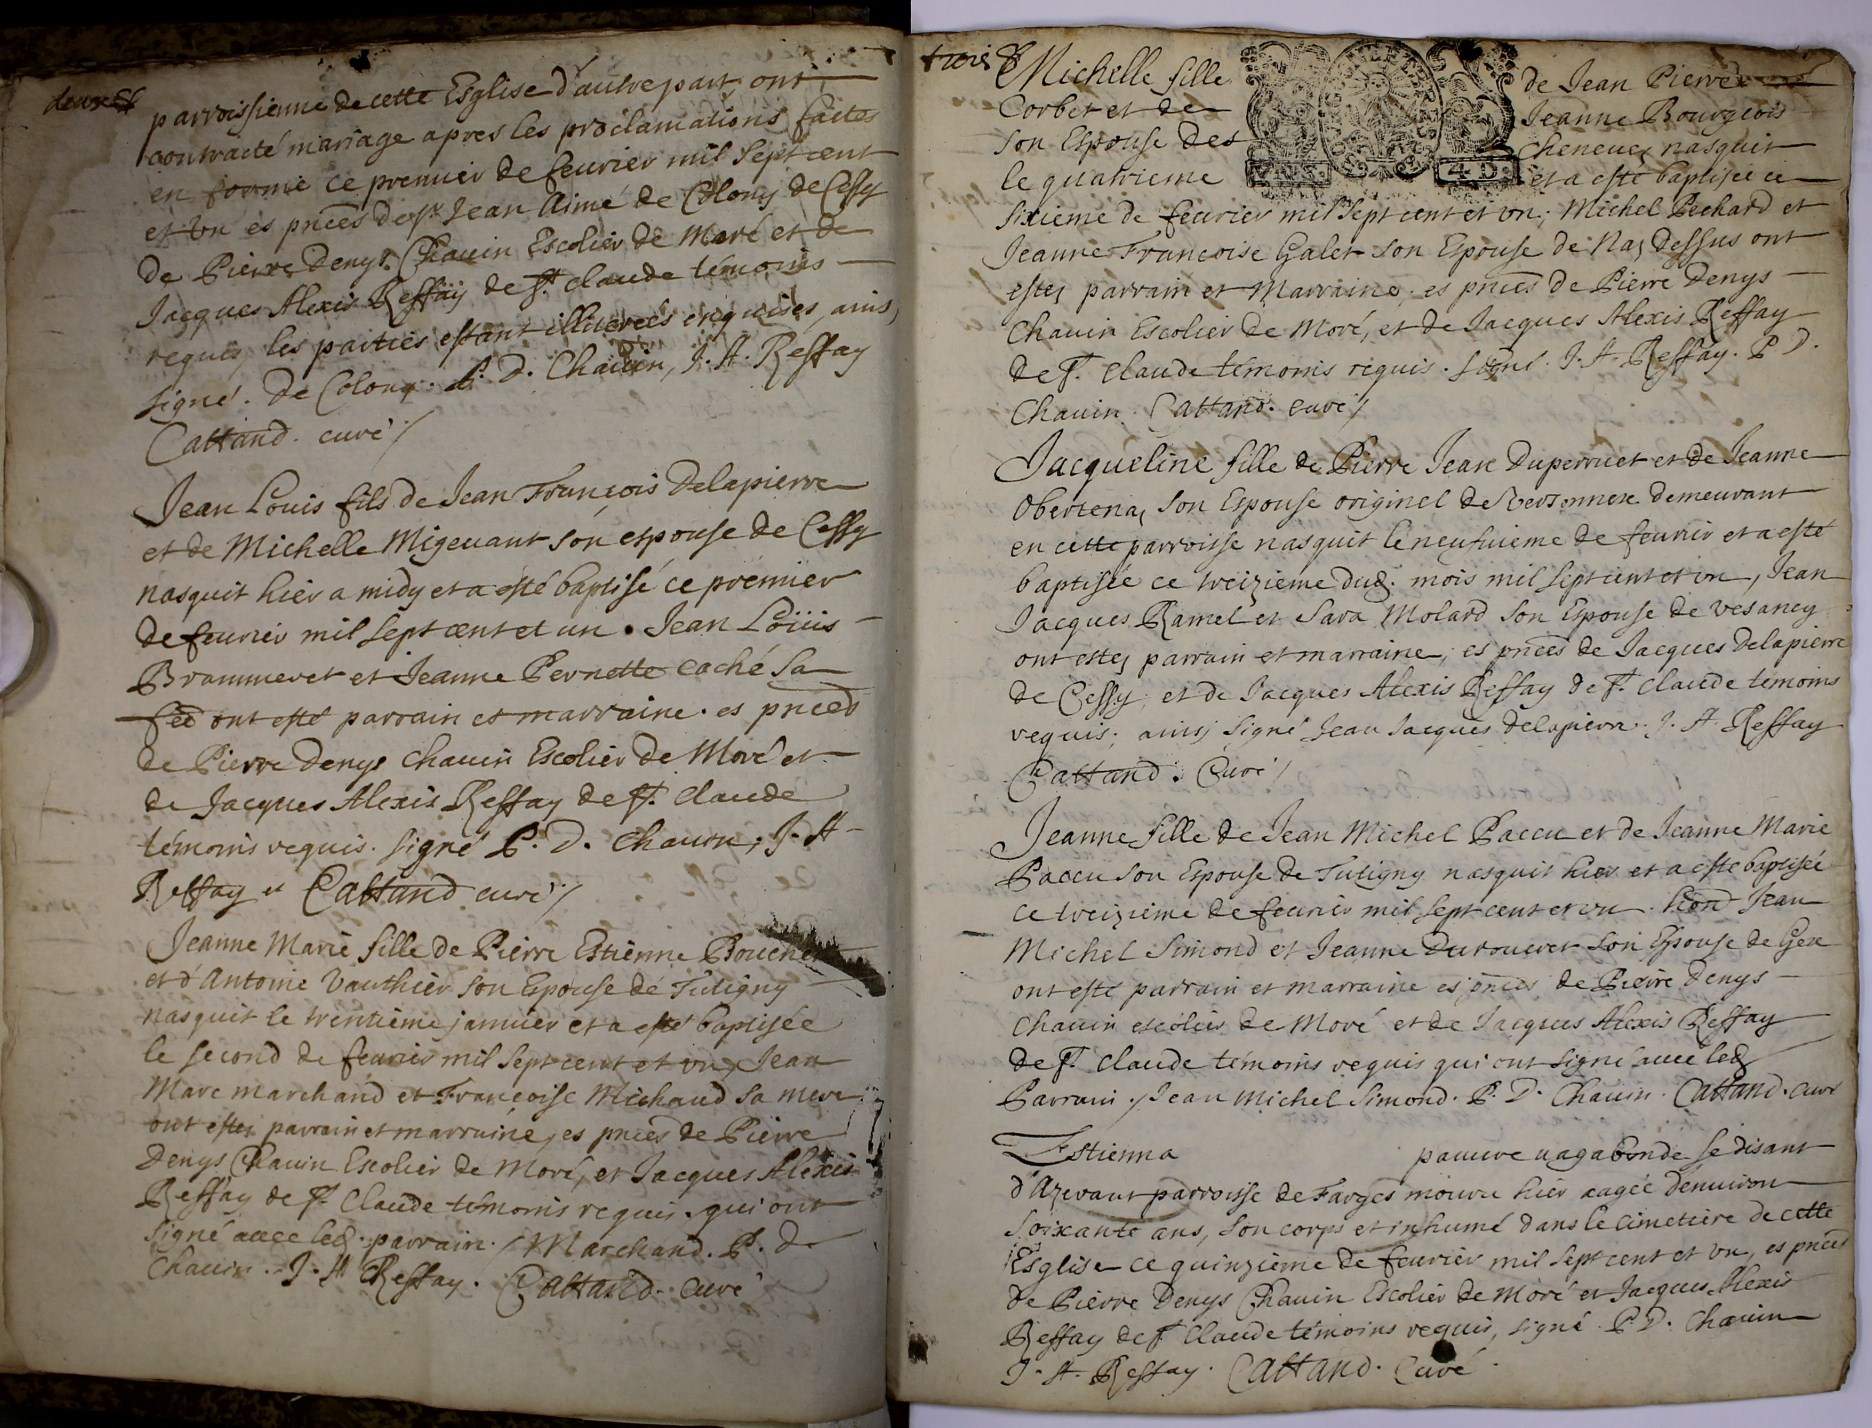 deux
parroissienne de cette Esglise d'autre part, ont
contracté mariage apres les proclamations faites
en forme ce premier de feurier mil sept cent
et vn es pñces de Sr. Jean Aimé de Colony de Cessy
de Pierre Denys Chauin Escolier de Moré et de
Jacques Alexis Reffay de St. Claude témoins
requis, les parties estant illiterées enquises, ainsy
signé. De Colony. P. D. Chauin, J. A. Reffay
Cattand. curé /
Jean Louis fils de Jean François Delapierre
et de Michelle Migeuant son espouse de Cessy
nasquit hier a midy et a esté baptisé ce premier
de feurier mil sept cent et un. Jean Loüis
Brammeret et Jeanne Pernette caché sa
ont esté parrain et marraine. es pñces
de Pierre Denys Chauin Escolier de Moré et
de Jacques Alexis Reffay de St. Claude
témoins requis. signé P. D. Chauin, J. A
Reffay et Cattand curé /
Jeanne Marie fille de Pierre Estienne Boucher
et d'Antoine Vauthier son Espouse de Tutigny
nasquit le trentieme januier et a esté baptisée
le second de feurier mil sept cent et vn, Jean
Marc marchand et Françoise Michaud sa mere
ont estez parrain et marraine, es pñces de Pierre
Denys Chauin Escolier de Moré, et Jacques Alexis
Reffay de St. Claude témoins requis. qui ont
signé auec led. parrain. / Marchand. P. D
Chauin. J. A Reffay. Cattand. Curé
trois
Michelle fille de Jean Pierre
Corbet et de Jeanne Bourgeois
son Espouse des Cheneuez nasquit
le quatrieme et a esté baptisée ce
sixieme de feurier mil sept cent et vn, Michel Pechard et
Jeanne Françoise Galet son Espouse de Naz dessus ont
estez parrain et Marraine. es pñces de Pierre Denys
Chauin Escolier de Moré, et de Jacques Alexis Reffay
de St. Claude témoins requis. signé. J. A. Reffay. P. D.
Chauin. Cattand. curé /
Jacqueline fille de Pierre Jean Duperruet et de Jeanne
Obertena, son Espouse originel de Versonnex demeurant
en cette parroisse nasquit le neufuieme de feurier et a esté
baptisée ce treizieme dud. mois mil sept cent et vn, Jean
Jacques Ramel et Sara Molard son Espouse de Vesancy
ont estez parrain et marraine, es pñces de Jacques Delapierre
de Cessy, et de Jacques Alexis Reffay de St. Claude témoins
requis. ainsy signé Jean Jacques Delapierre. J. A. Reffay
Cattand. Curé /
Jeanne fille de Jean Michel Paccu et de Jeanne Marie
Paccu son Espouse de Tutigny nasquit hier et a esté baptisée
ce treizieme de feurier mil sept cent et vn. hond Jean
Michel Simond et Jeanne Durouuret son Espouse de Gex
ont esté parrain et marraine es pñces de Pierre Denys
Chauin escolier de Moré et de Jacques Alexis Reffay
de St. Claude témoins requis qui ont signé auec led
Parrain. / Jean Michel Simond. P. D. Chauin. Cattand. curé
Estienna pauure uagabonde se disant
d'Azerant parroisse de Farges mourut hier aagée d'enuiron
soixante ans, son corps est inhumé dans le cimetiere de cette
Esglise ce quinzieme de feurier mil sept cent et vn, es pñces
de Pierre Denys Chauin Escolier de Moré et Jacques Alexis
Reffay de St Claude témoins requis, signé. P. D. Chauin
J. A. Reffay. Cattand. Curé.